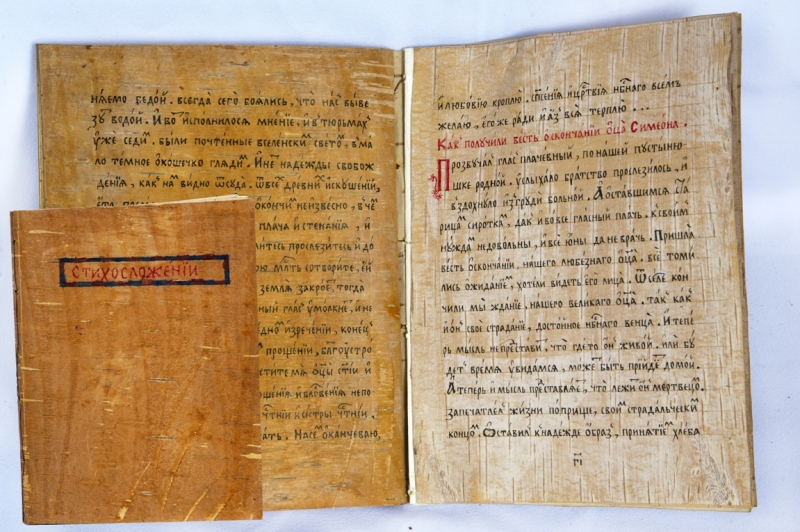 няемо бедой. всегда сего боялись, что нас выве
зут водой. И вот исполнилося мнение. и в тюрьмах
уже седим. были почтенные вселенским светом. в ма
ло темное окошечко глядим. И не надежды свобож
дения, как нам видно отсуда. Ѿ всех древних искушений,
окончим неизвесно, в чем
плача и стенания, и
литесь прослезитесь и до
мать сотворите. ей
земля закроет, тогда
ный глас умолкнет, и не
изречении, конец
прощении, благоустро
стите мя отцы святии и
ошения и благвения непо
чтнии и сестры чтнии.
ать. Нас оканчеваю,
СТИХОСЛОЖЕНІИ
и любовию кроплю. спсения и цртвия нбнаго всем
желаю, его же ради и аз вся терплю...
Как получили весть о скончании отца Симеона.
Прозвучал глас плачевный, по нашей пустыне
шке родной. услыхало братство прослезилось, и
вздохнуло из груди больной. А оставшимся ста
рицам сироткам, дак и вовсе гласный плачь. к своим
нуждам недовольны, и все юны да не врачь. Пришла
весть о скончании, нашего любезнаго отца. все томи
лись ожиданием, хотели видеть его лица. Ѿселе кон
чили мы ждание, нашего великаго отца. так как
и он свое страдание, достойное нбнаго венца. И тепе
рь мысль не преставит, что где то он живой. или бу
дет время увидамся, может быть прийдет домой.
А теперь и мысль преставляет, что лежит он мертвецом.
запечатлел жизни поприще, своим страдальческим
концом. Оставил к надежде образ, принятием хлеба
гі